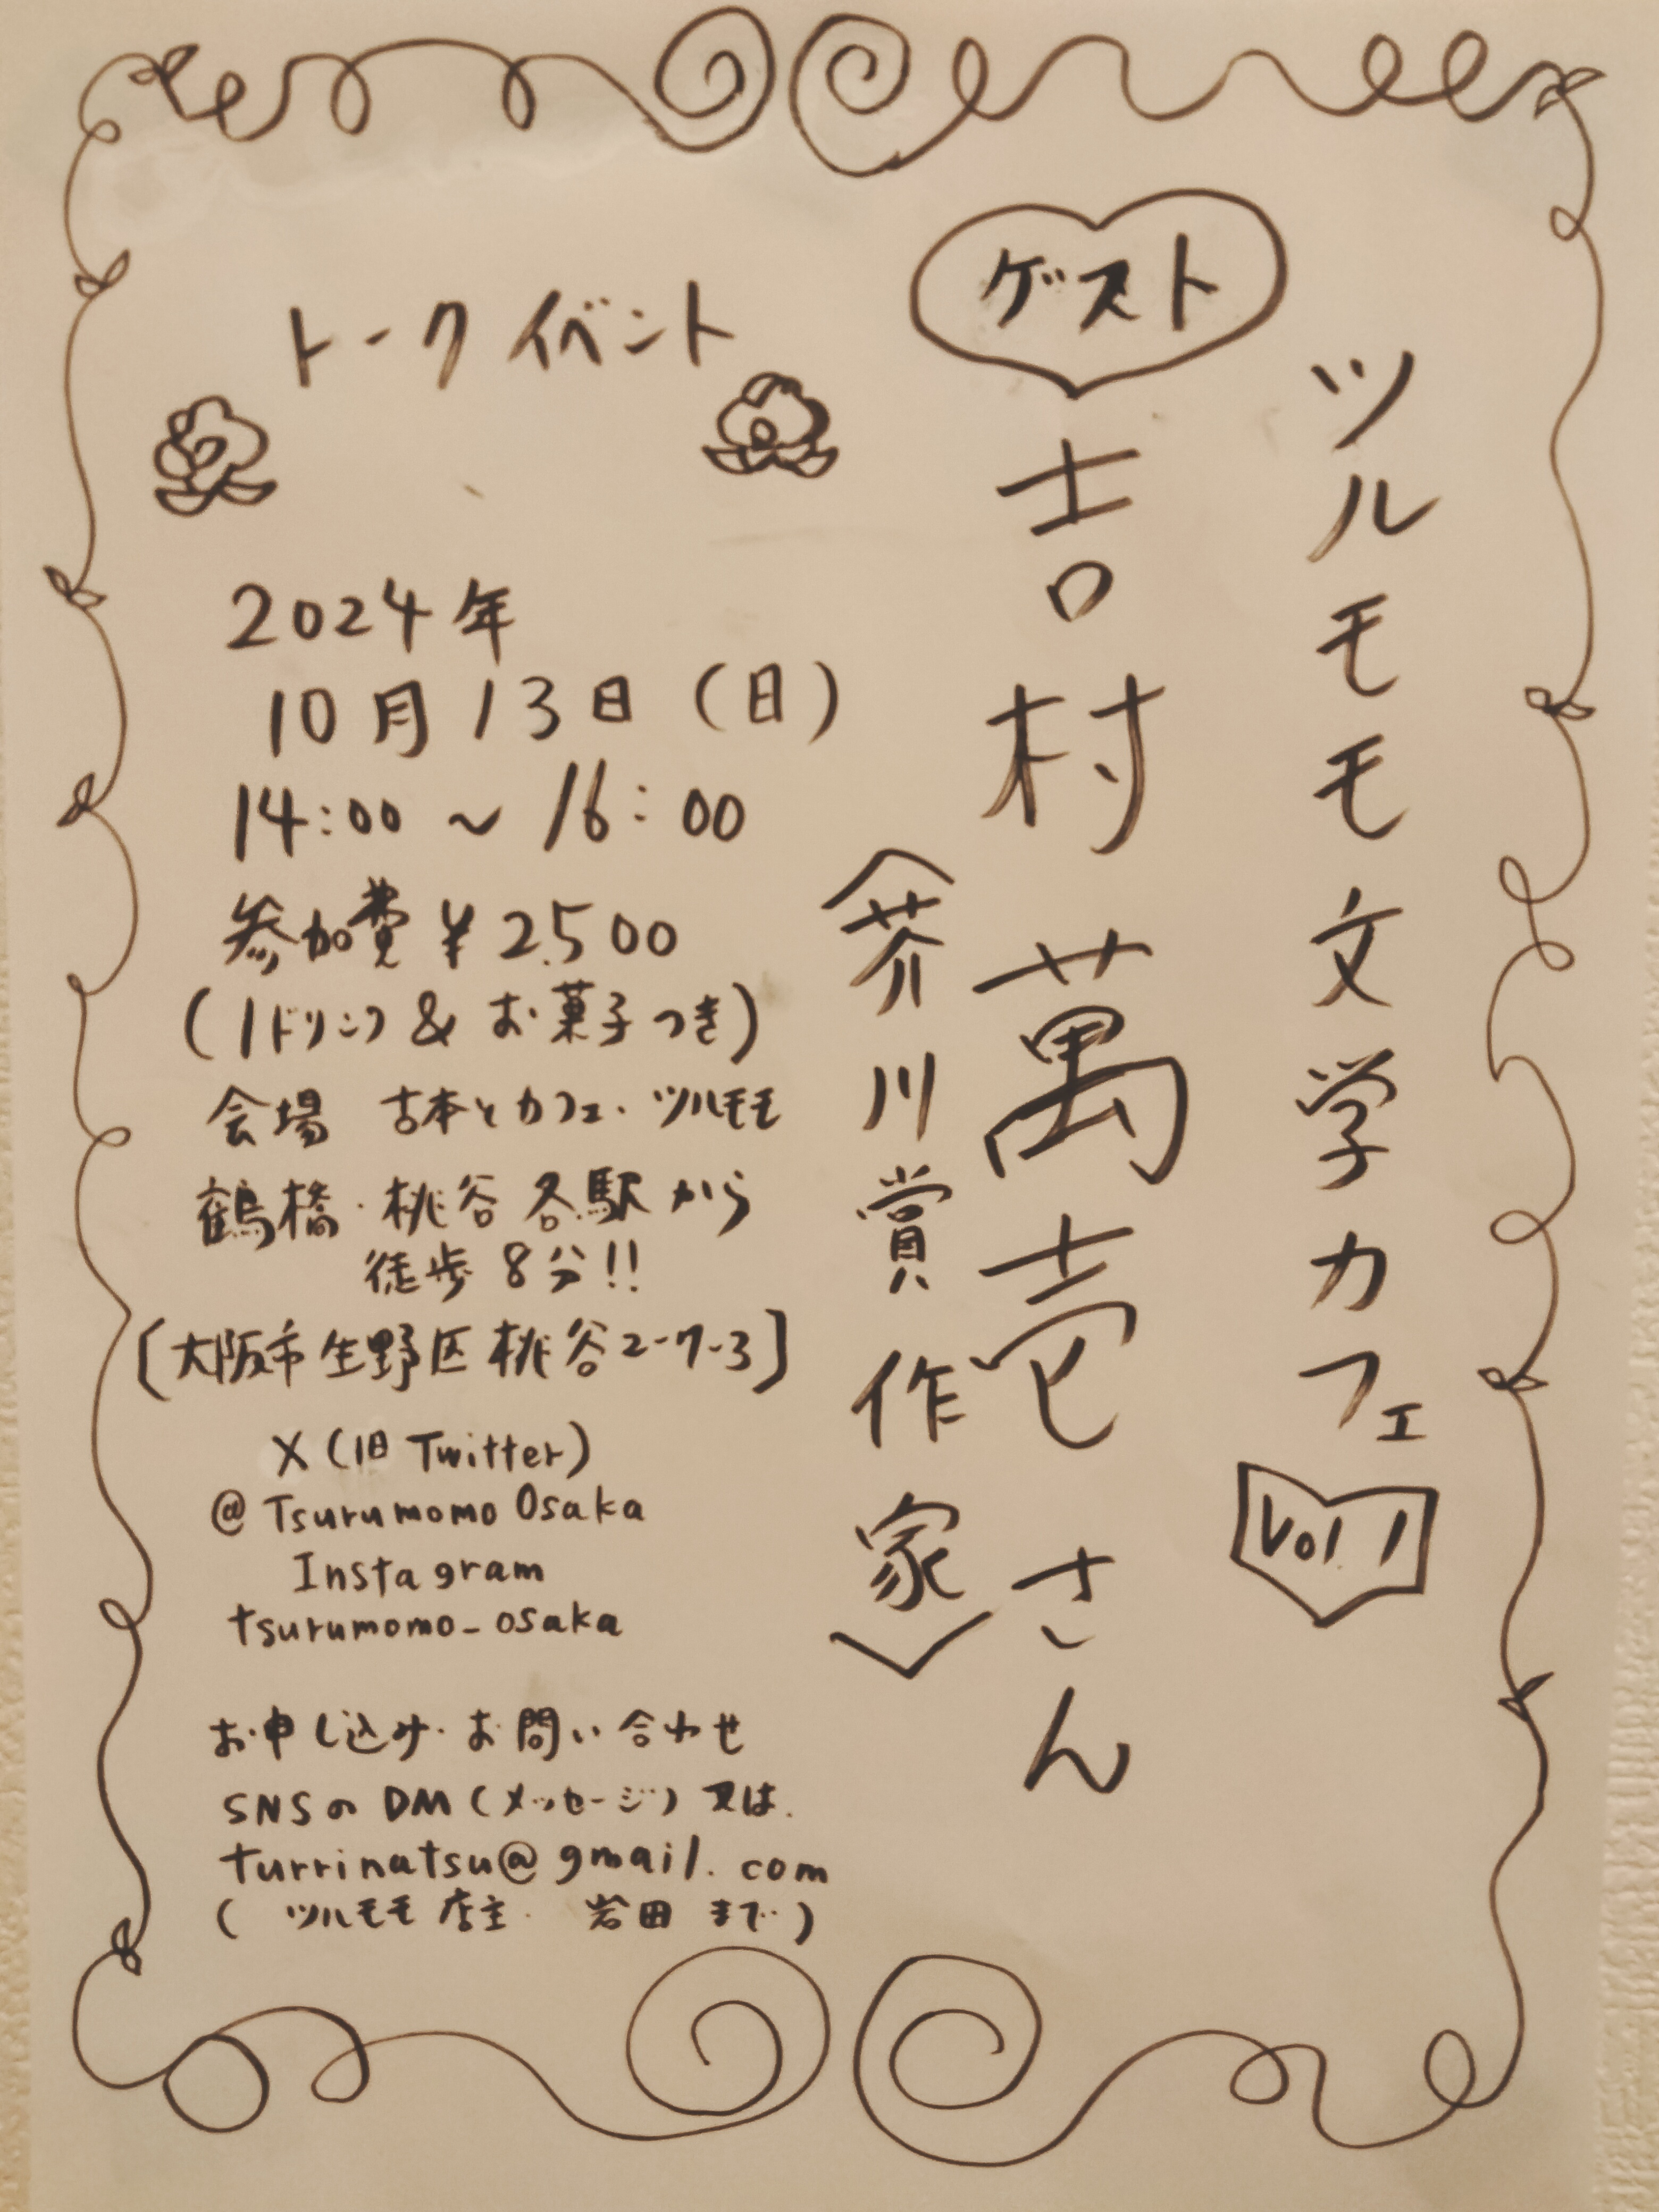 ツルモモ文学カフェ
Vol 1
ゲスト
吉村萬壱さん
〈芥川賞作家〉
トークイベント
2024年
10月13日(日)
14:00~16:00
参加費¥2500
(1ドリンク&お菓子つき)
会場 古本とカフェ・ツルモモ
鶴橋・桃谷各駅から
徒歩8分!!
[大阪市生野区桃谷2-7-3]
X(旧Twitter)
@TsurumomoOsaka
Instagram
tsurumomo_osaka
お申し込み・お問い合わせ
SNSのDM(メッセージ)又は
turrinatsu@gmail.com
(ツルモモ店主・岩田まで)